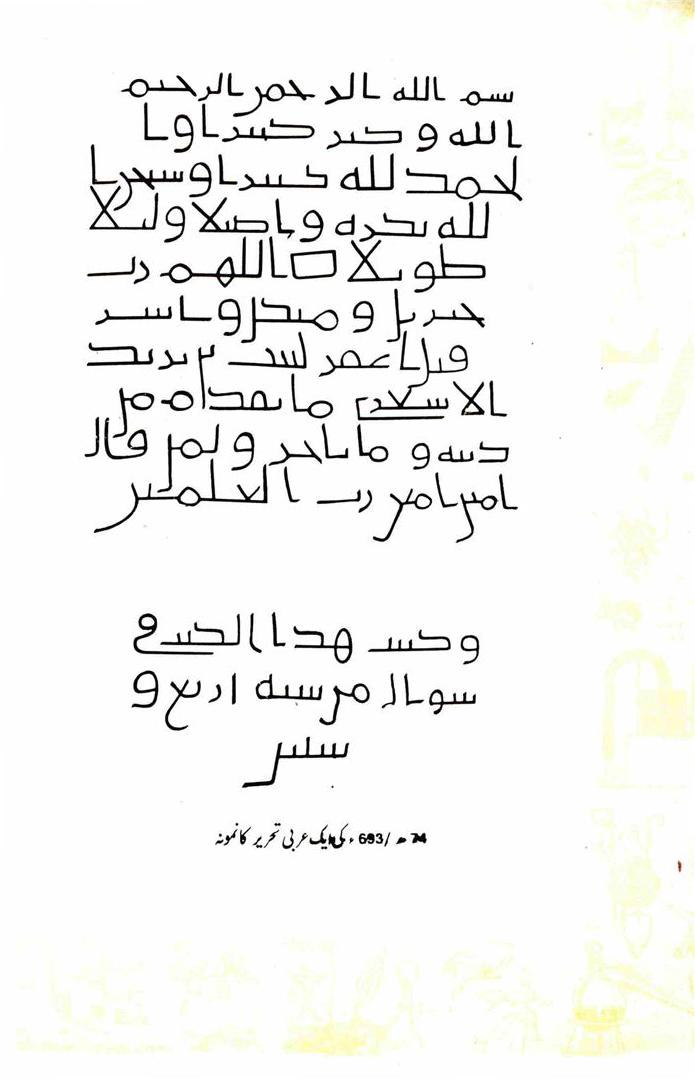 بسم الله الرحمن الرحيم
الله و كبر كبيرا و ا
لحمد لله كثيرا و سبحن ا
لله بكرة و اصيلا و ليلا
طويلا اللهم رب
جبريل و ميكل و اسر
فيل اغفر لثبت بن يزيد
الاشعري ما تقدم من
ذنبه و ما تاخر و لمن قال
امين امين رب العلمين
و كتبت هذا الكتب في
شوال من سنة اربع و
ستين
74 ھ /693ء کی ایک عربی تحریر کا نمونہ